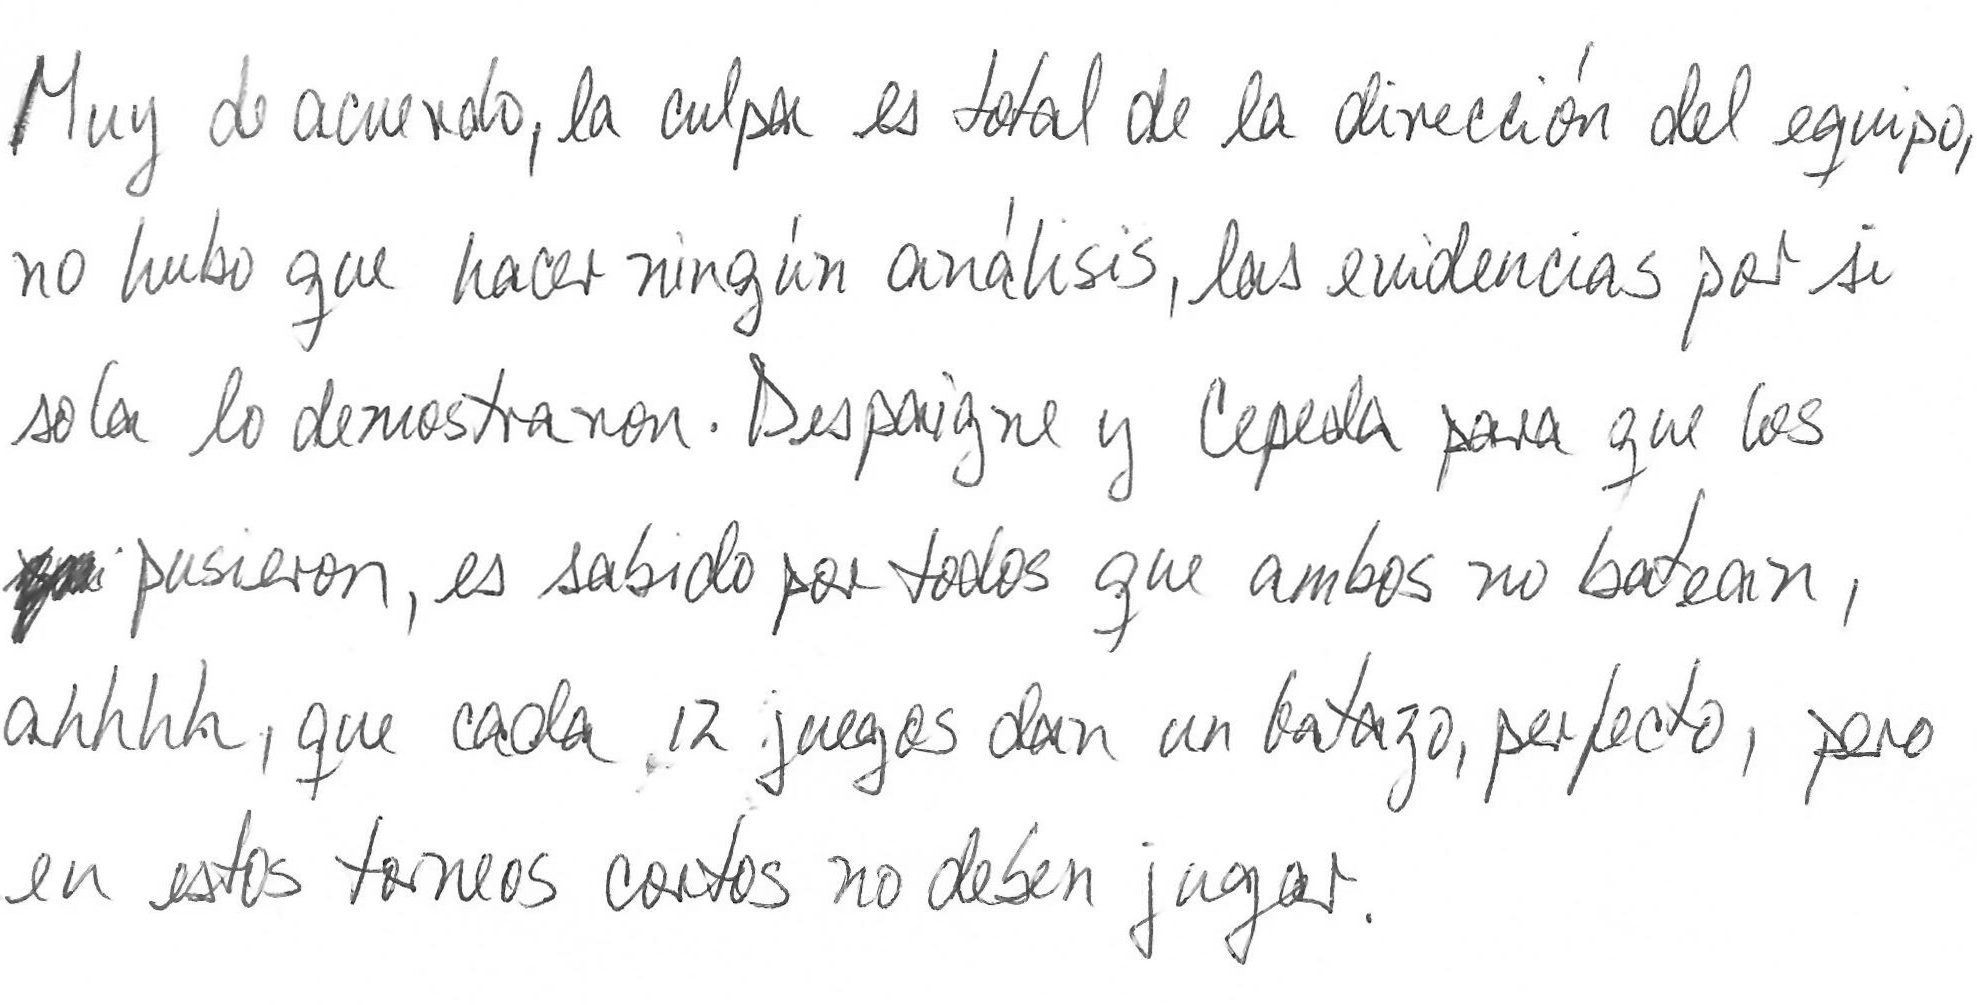 Muy de acuerdo, la culpa es total de la dirección del equipo,
no hubo que hacer ningún análisis, las evidencias por si
sola lo demostraron. Despaigne y Cepeda para que los
pusieron, es sabido por todos que ambos no batean,
ahhhh, que cada 12 juegos dan un batazo, perfecto, pero
en estos torneos cortos no deben jugar.